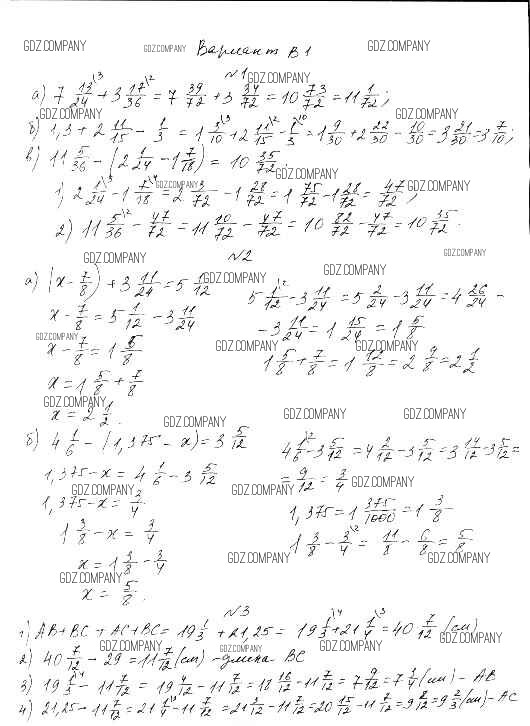 GDZ.COMPANY GDZ.COMPANY Вариант В1 GDZ.COMPANY
№1 GDZ.COMPANY
а) 7 13/24 \3 + 3 17/36 \2 = 7 39/72 + 3 34/72 = 10 73/72 = 11 1/72;
GDZ.COMPANY GDZ.COMPANY
б) 1,3 + 2 11/15 - 1/3 = 1 3/10 \3 + 2 11/15 \2 - 1/3 \10 = 1 9/30 + 2 22/30 - 10/30 = 3 21/30 = 3 7/10;
в) 11 5/36 - (2 1/24 - 1 7/18) = 10 35/72;
GDZ.COMPANY
1) 2 1/24 \3 - 1 7/18 \4 = 2 3/72 - 1 28/72 = 1 75/72 - 1 28/72 = 47/72;
GDZ.COMPANY GDZ.COMPANY
2) 11 5/36 \2 - 47/72 = 11 10/72 - 47/72 = 10 82/72 - 47/72 = 10 35/72.
GDZ.COMPANY №2 GDZ.COMPANY
а) (x - 7/8) + 3 11/24 = 5 1/12
GDZ.COMPANY GDZ.COMPANY
5 1/12 \2 - 3 11/24 = 5 2/24 - 3 11/24 = 4 26/24 -
x - 7/8 = 5 1/12 - 3 11/24
- 3 11/24 = 1 15/24 = 1 5/8
GDZ.COMPANY GDZ.COMPANY GDZ.COMPANY
x - 7/8 = 1 5/8
1 5/8 + 7/8 = 1 12/8 = 2 4/8 = 2 1/2
x = 1 5/8 + 7/8
GDZ.COMPANY
x = 2 1/2.
GDZ.COMPANY GDZ.COMPANY GDZ.COMPANY
б) 4 1/6 - (1,375 - x) = 3 5/12
4 1/6 \2 - 3 5/12 = 4 2/12 - 3 5/12 = 3 14/12 - 3 5/12 =
1,375 - x = 4 1/6 - 3 5/12
= 9/12 = 3/4
GDZ.COMPANY GDZ.COMPANY GDZ.COMPANY
1,375 - x = 3/4
1,375 = 1 375/1000 = 1 3/8
1 3/8 - x = 3/4
1 3/8 - 3/4 \2 = 11/8 - 6/8 = 5/8
GDZ.COMPANY GDZ.COMPANY
x = 1 3/8 - 3/4
GDZ.COMPANY
x = 5/8.
№3
1) AB + BC + AC + BC = 19 1/3 + 21,25 = 19 1/3 \4 + 21 1/4 \3 = 40 7/12 (см)
GDZ.COMPANY GDZ.COMPANY GDZ.COMPANY
2) 40 7/12 - 29 = 11 7/12 (см) - длина BC
3) 19 1/3 \4 - 11 7/12 = 19 4/12 - 11 7/12 = 18 16/12 - 11 7/12 = 7 9/12 = 7 3/4 (см) - AB
GDZ.COMPANY GDZ.COMPANY
4) 21,25 - 11 7/12 = 21 1/4 \3 - 11 7/12 = 21 3/12 - 11 7/12 = 20 15/12 - 11 7/12 = 9 8/12 = 9 2/3 (см) - AC